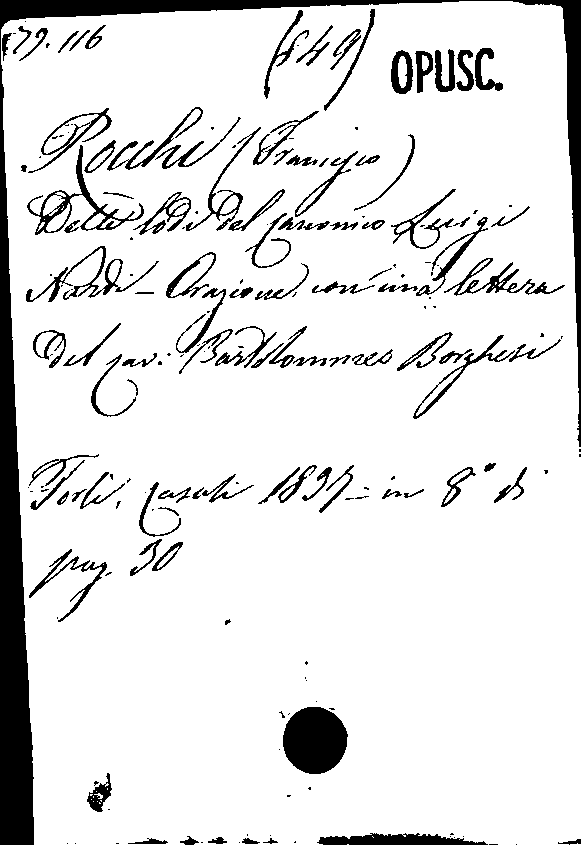 79. 116
(849)
OPUSC.
Rocchi (Francesco)
Delle lodi del canonico Luigi
Nardi - Orazione, con una lettera
del cav: Bartolommeo Borghesi
Forlì, Casali 1837 = in 8° di
pag. 30